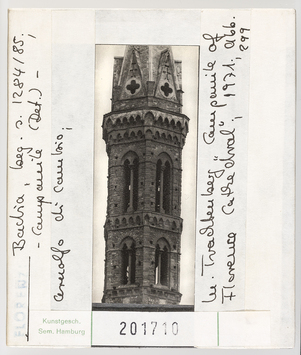 Badia, beg. s. 1284/85;
- Campanile (Det.) -
Arnolfo di Cambio;
M. Trachtenberg "Campanile of
Florence Cathedral", 1971, Abb.
299
FLORENZ
Kunstgesch.
Sem. Hamburg
201710